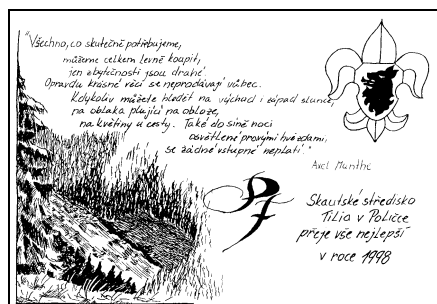 "Všechno, co skutečně potřebujeme,
můžeme celkem levně koupit,
jen zbytečnosti jsou drahé.
Opravdu krásné věci se neprodávají vůbec.
Kdykoliv můžete hledět na východ i západ slunce,
na oblaka plující na obloze,
na květiny u cesty. Také do síně noci
osvětlené pravými hvězdami,
se žádné vstupné neplatí."
Axel Munthe
PF
Skautské středisko
Tilia v Poličce
přeje vše nejlepší
v roce 1998